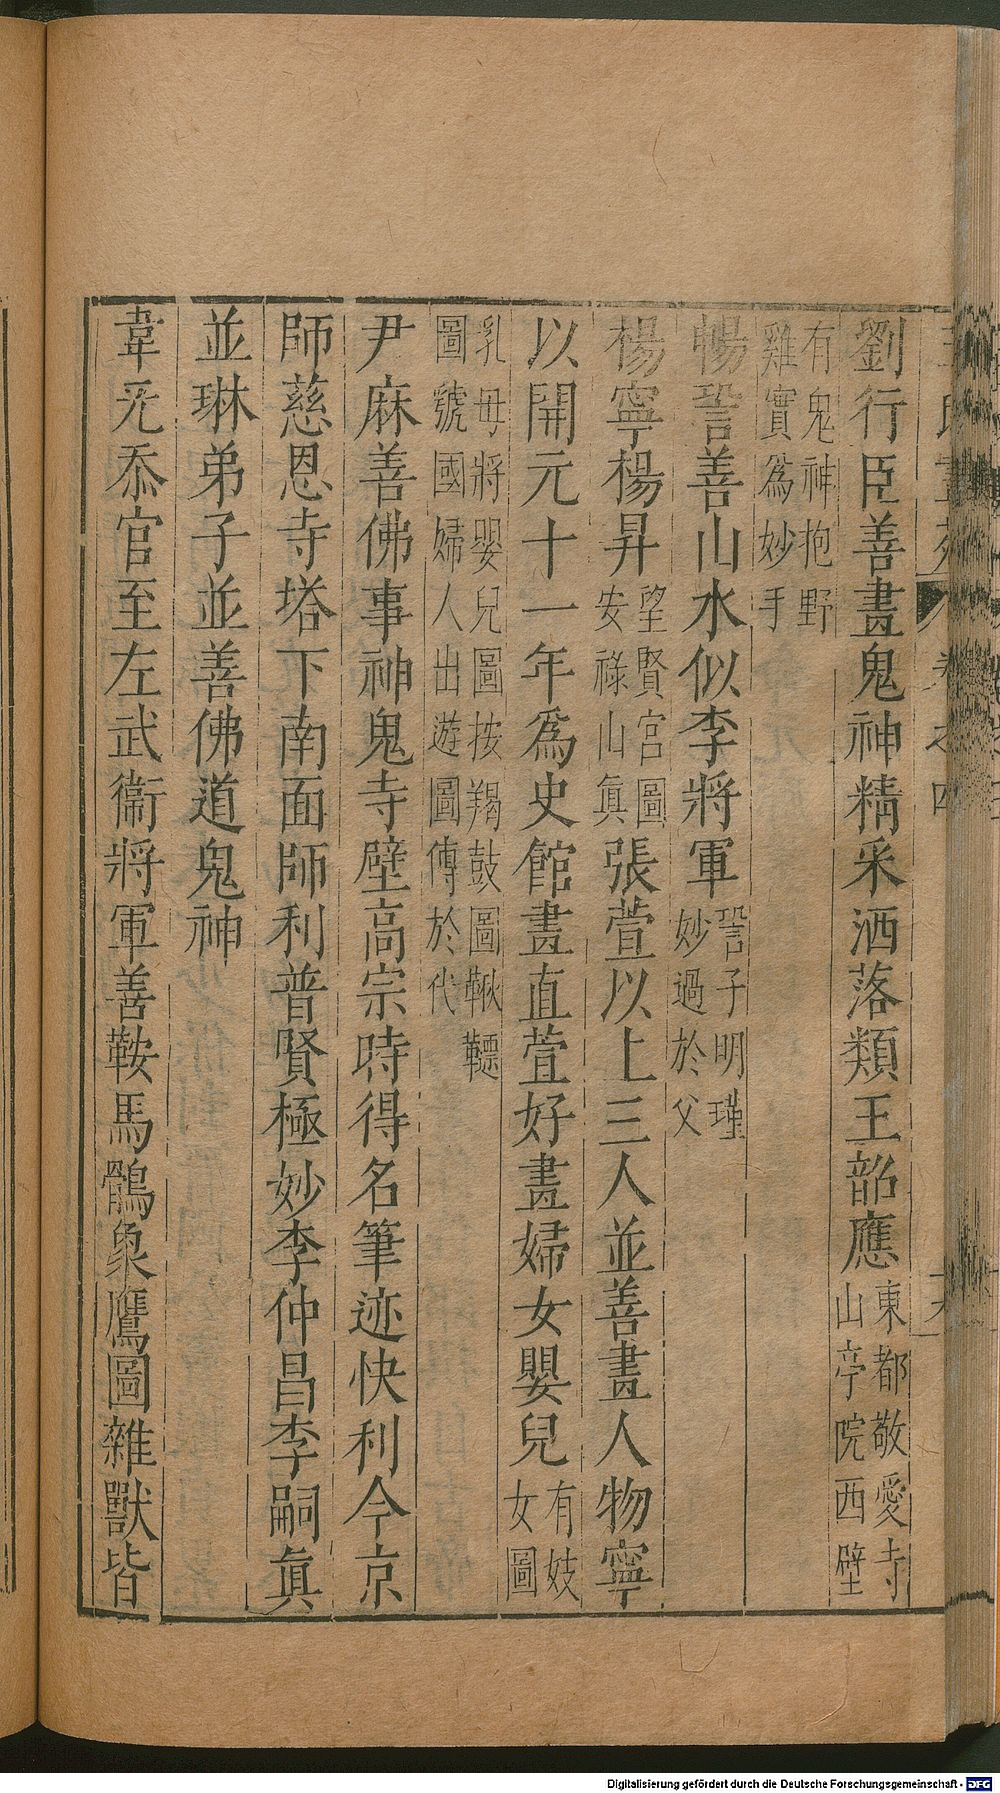 劉行臣善畫鬼神精采洒落類王韶應東都敬愛寺山亭院西壁
有鬼神抱野雞實爲妙手
暢䛗善山水似李將軍䛗子明瑾妙過於父
楊寧楊昇望賢宮圖安祿山眞張萱以上三人並善畫人物寧
以開元十一年爲史館畫直萱好畫婦女嬰兒有妓女圖
乳母將嬰兒圖按羯鼓圖鞦韆圖虢國婦人出遊圖傳於代
尹麻善佛事神鬼寺壁高宗時得名筆迹快利今京
師慈恩寺塔下南面師利普賢極妙李仲昌李嗣眞
並琳弟子並善佛道鬼神
韋无忝官至左武衞將軍善鞍馬鶻象鷹圖雜獸皆
Digitalisierung gefördert durch die Deutsche Forschungsgemeinschaft - DFG